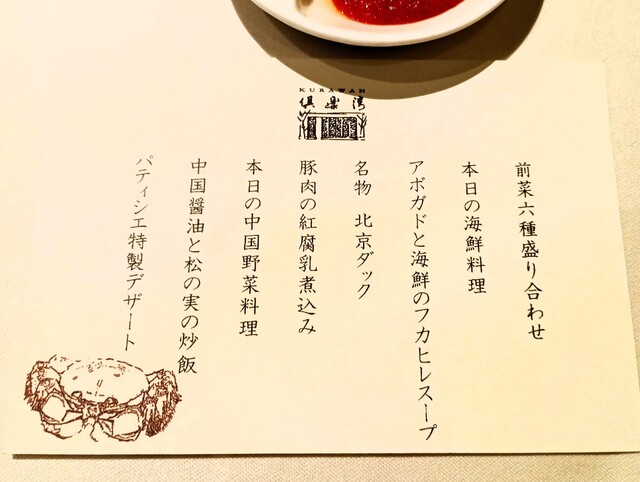 KURAWAN
倶楽湾
前菜六種盛り合わせ
本日の海鮮料理
アボガドと海鮮のフカヒレスープ
名物　北京ダック
豚肉の紅腐乳煮込み
本日の中国野菜料理
中国醤油と松の実の炒飯
パティシエ特製デザート